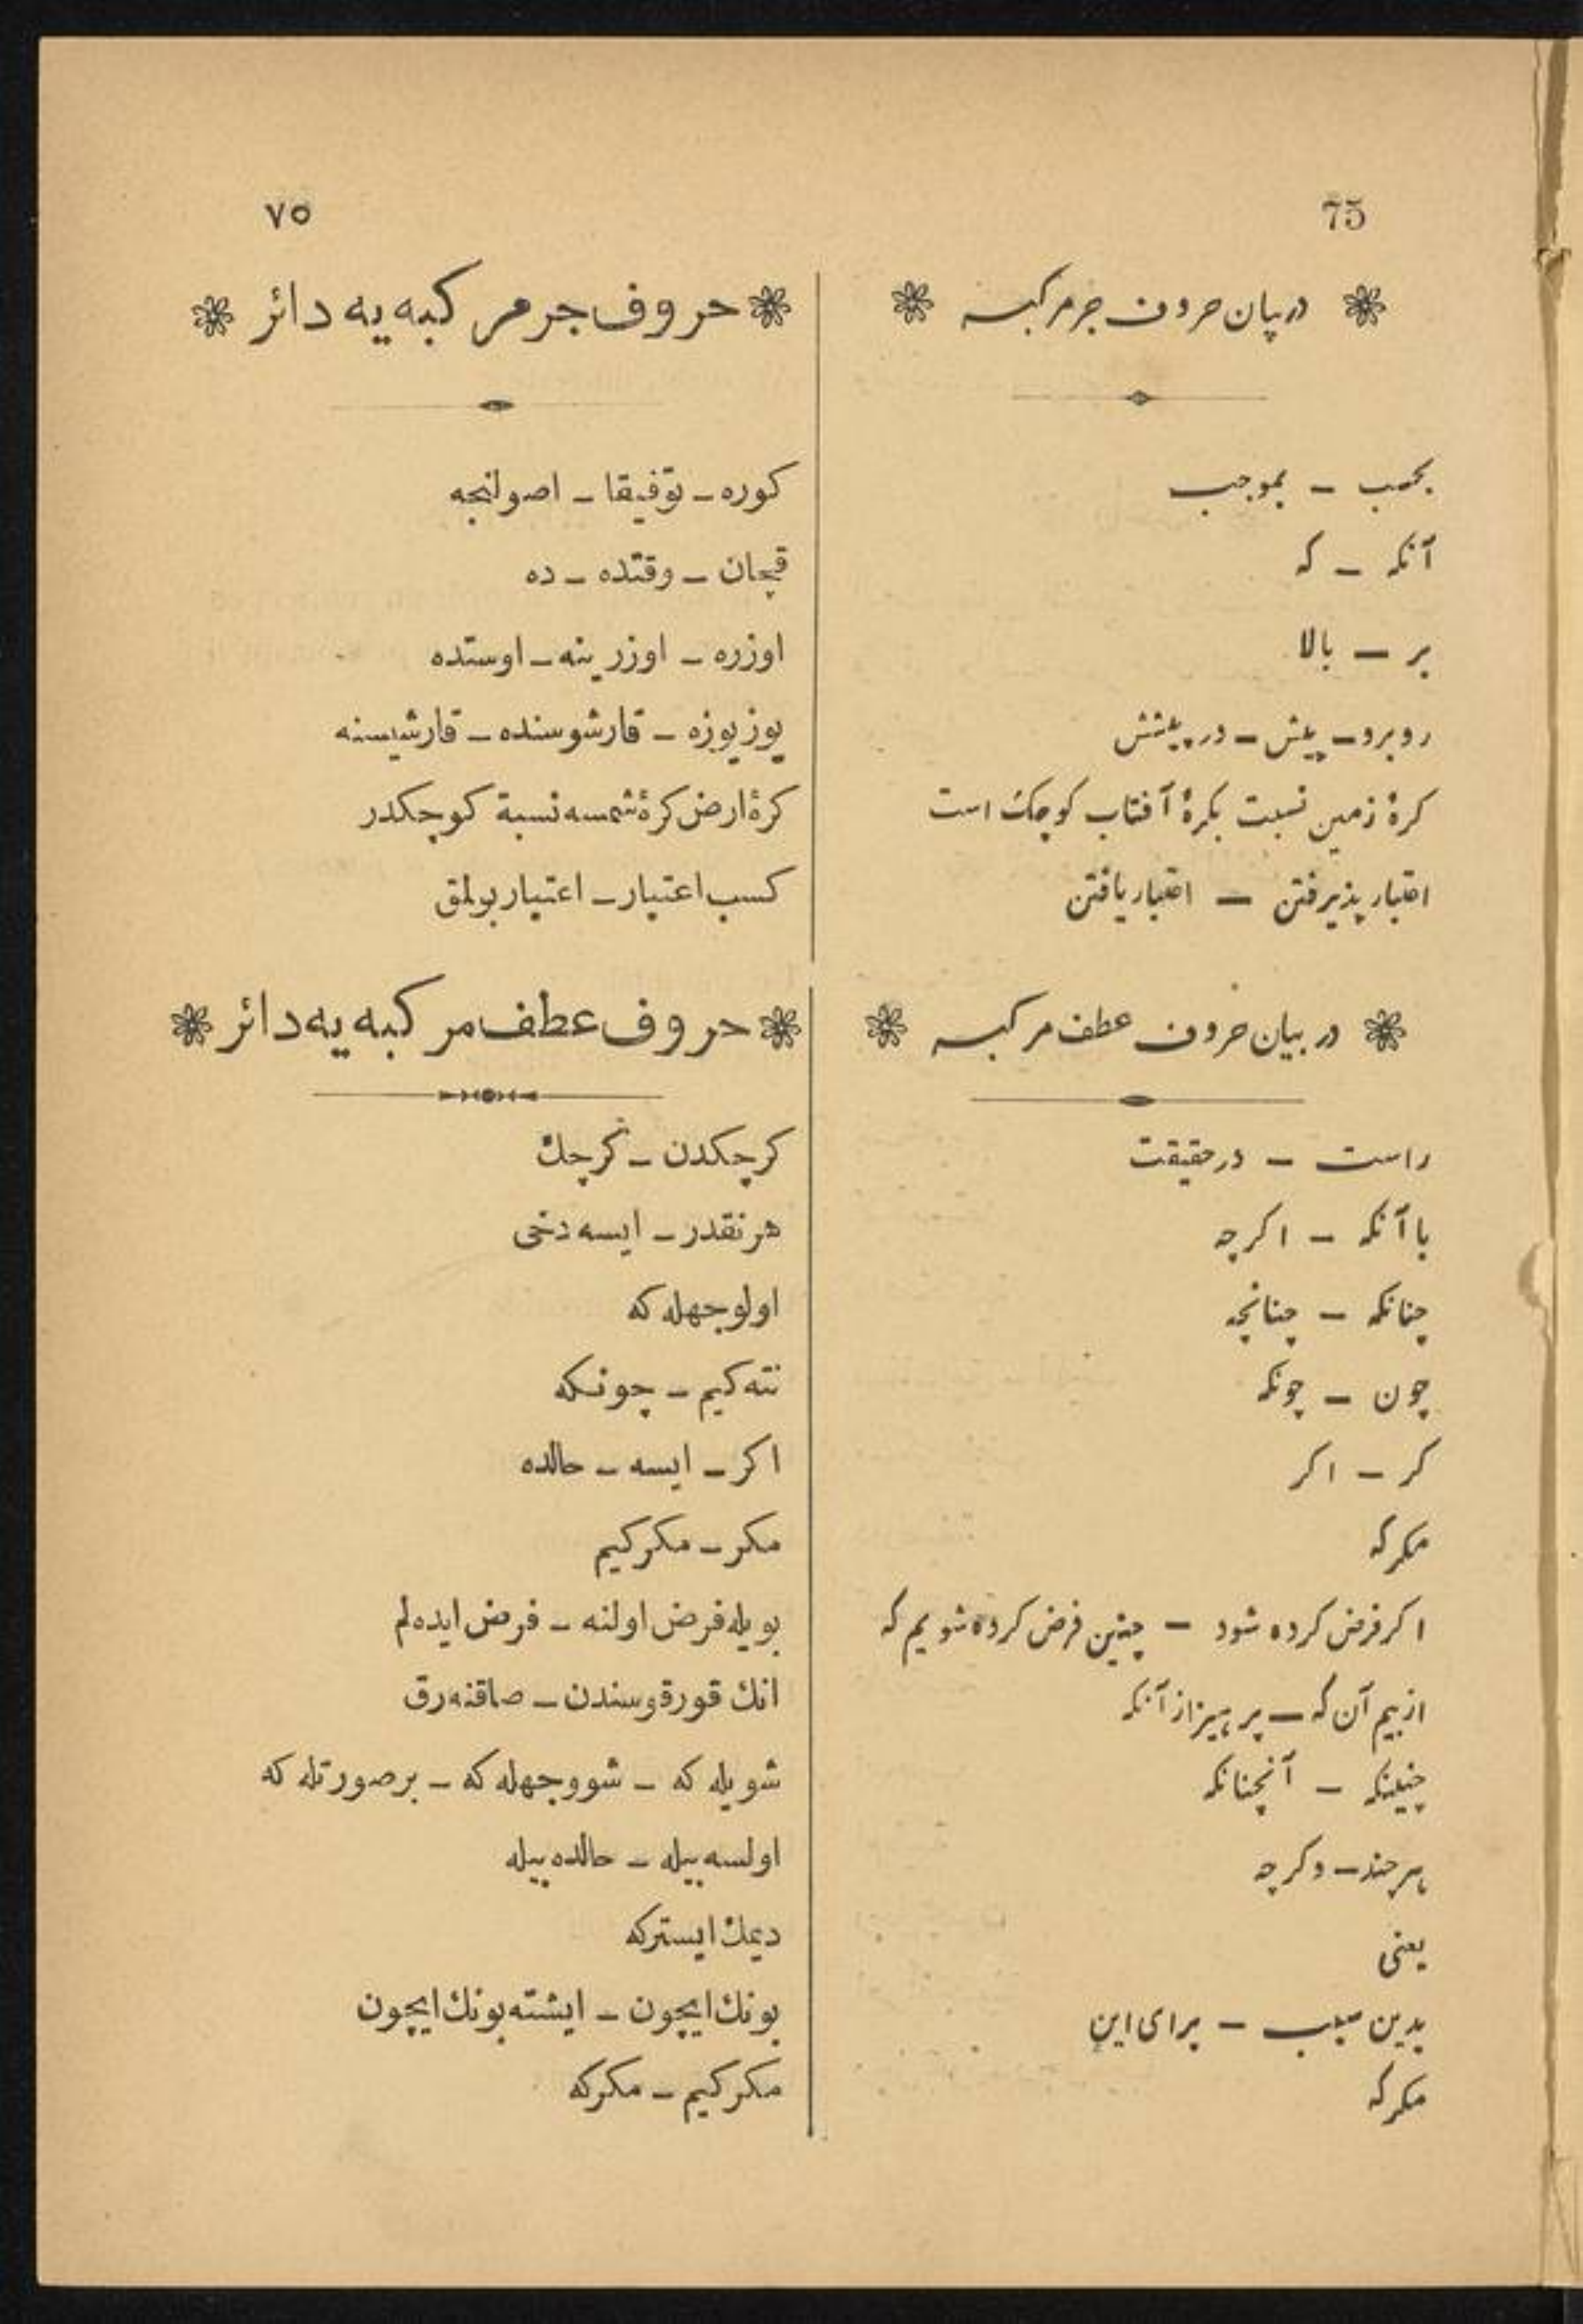 75
٧٥
در پان حروف جر مرکبه
بحسب – بموجب
آنکه – که
بر – بالا
روبرو – پیش – در پیشش
کرهٔ زمین نسبت بکرهٔ آفتاب کوچک است
اعتبار پذیرفتن – اعتبار یافتن
در بیان حروف عطف مرکبه
راست – در حقیقت
با آنکه – اکرچه
چنانکه – چنانچه
چون – چونکه
کر – اکر
مکر که
اکر فرض کرده شود – چنین فرض کرده شویم که
از بیم آن که – پرهیز از آنکه
چنینکه – آنچنانکه
هر چند – وکرچه
یعنی
بدین سبب – برای این
مکر که
حروف جر مرکبه یه دائر
کوره – توفیقا – اصولنجه
قچان – وقتده – ده
اوزره – اوزرینه – اوستده
یوز یوزه – قارشوسنده – قارشیسنه
کرهٔ ارض کرهٔ شمسه نسبة کوچکدر
کسب اعتبار – اعتبار بولمق
حروف عطف مرکبه یه دائر
کرچکدن – کرچك
هر نقدر – ایسه دخی
اولوجهله که
نته کیم – چونکه
اکر – ایسه – حالده
مکر – مکر کیم
بویله فرض اولنه – فرض ایده لم
انك قورقوسندن – صاقنه رق
شویله که – شووجهله که – برصورتله که
اولسه بیله – حالده بیله
دیمك ایسترکه
بونك ایچون – ایشته بونك ایچون
مکر کیم – مکر که